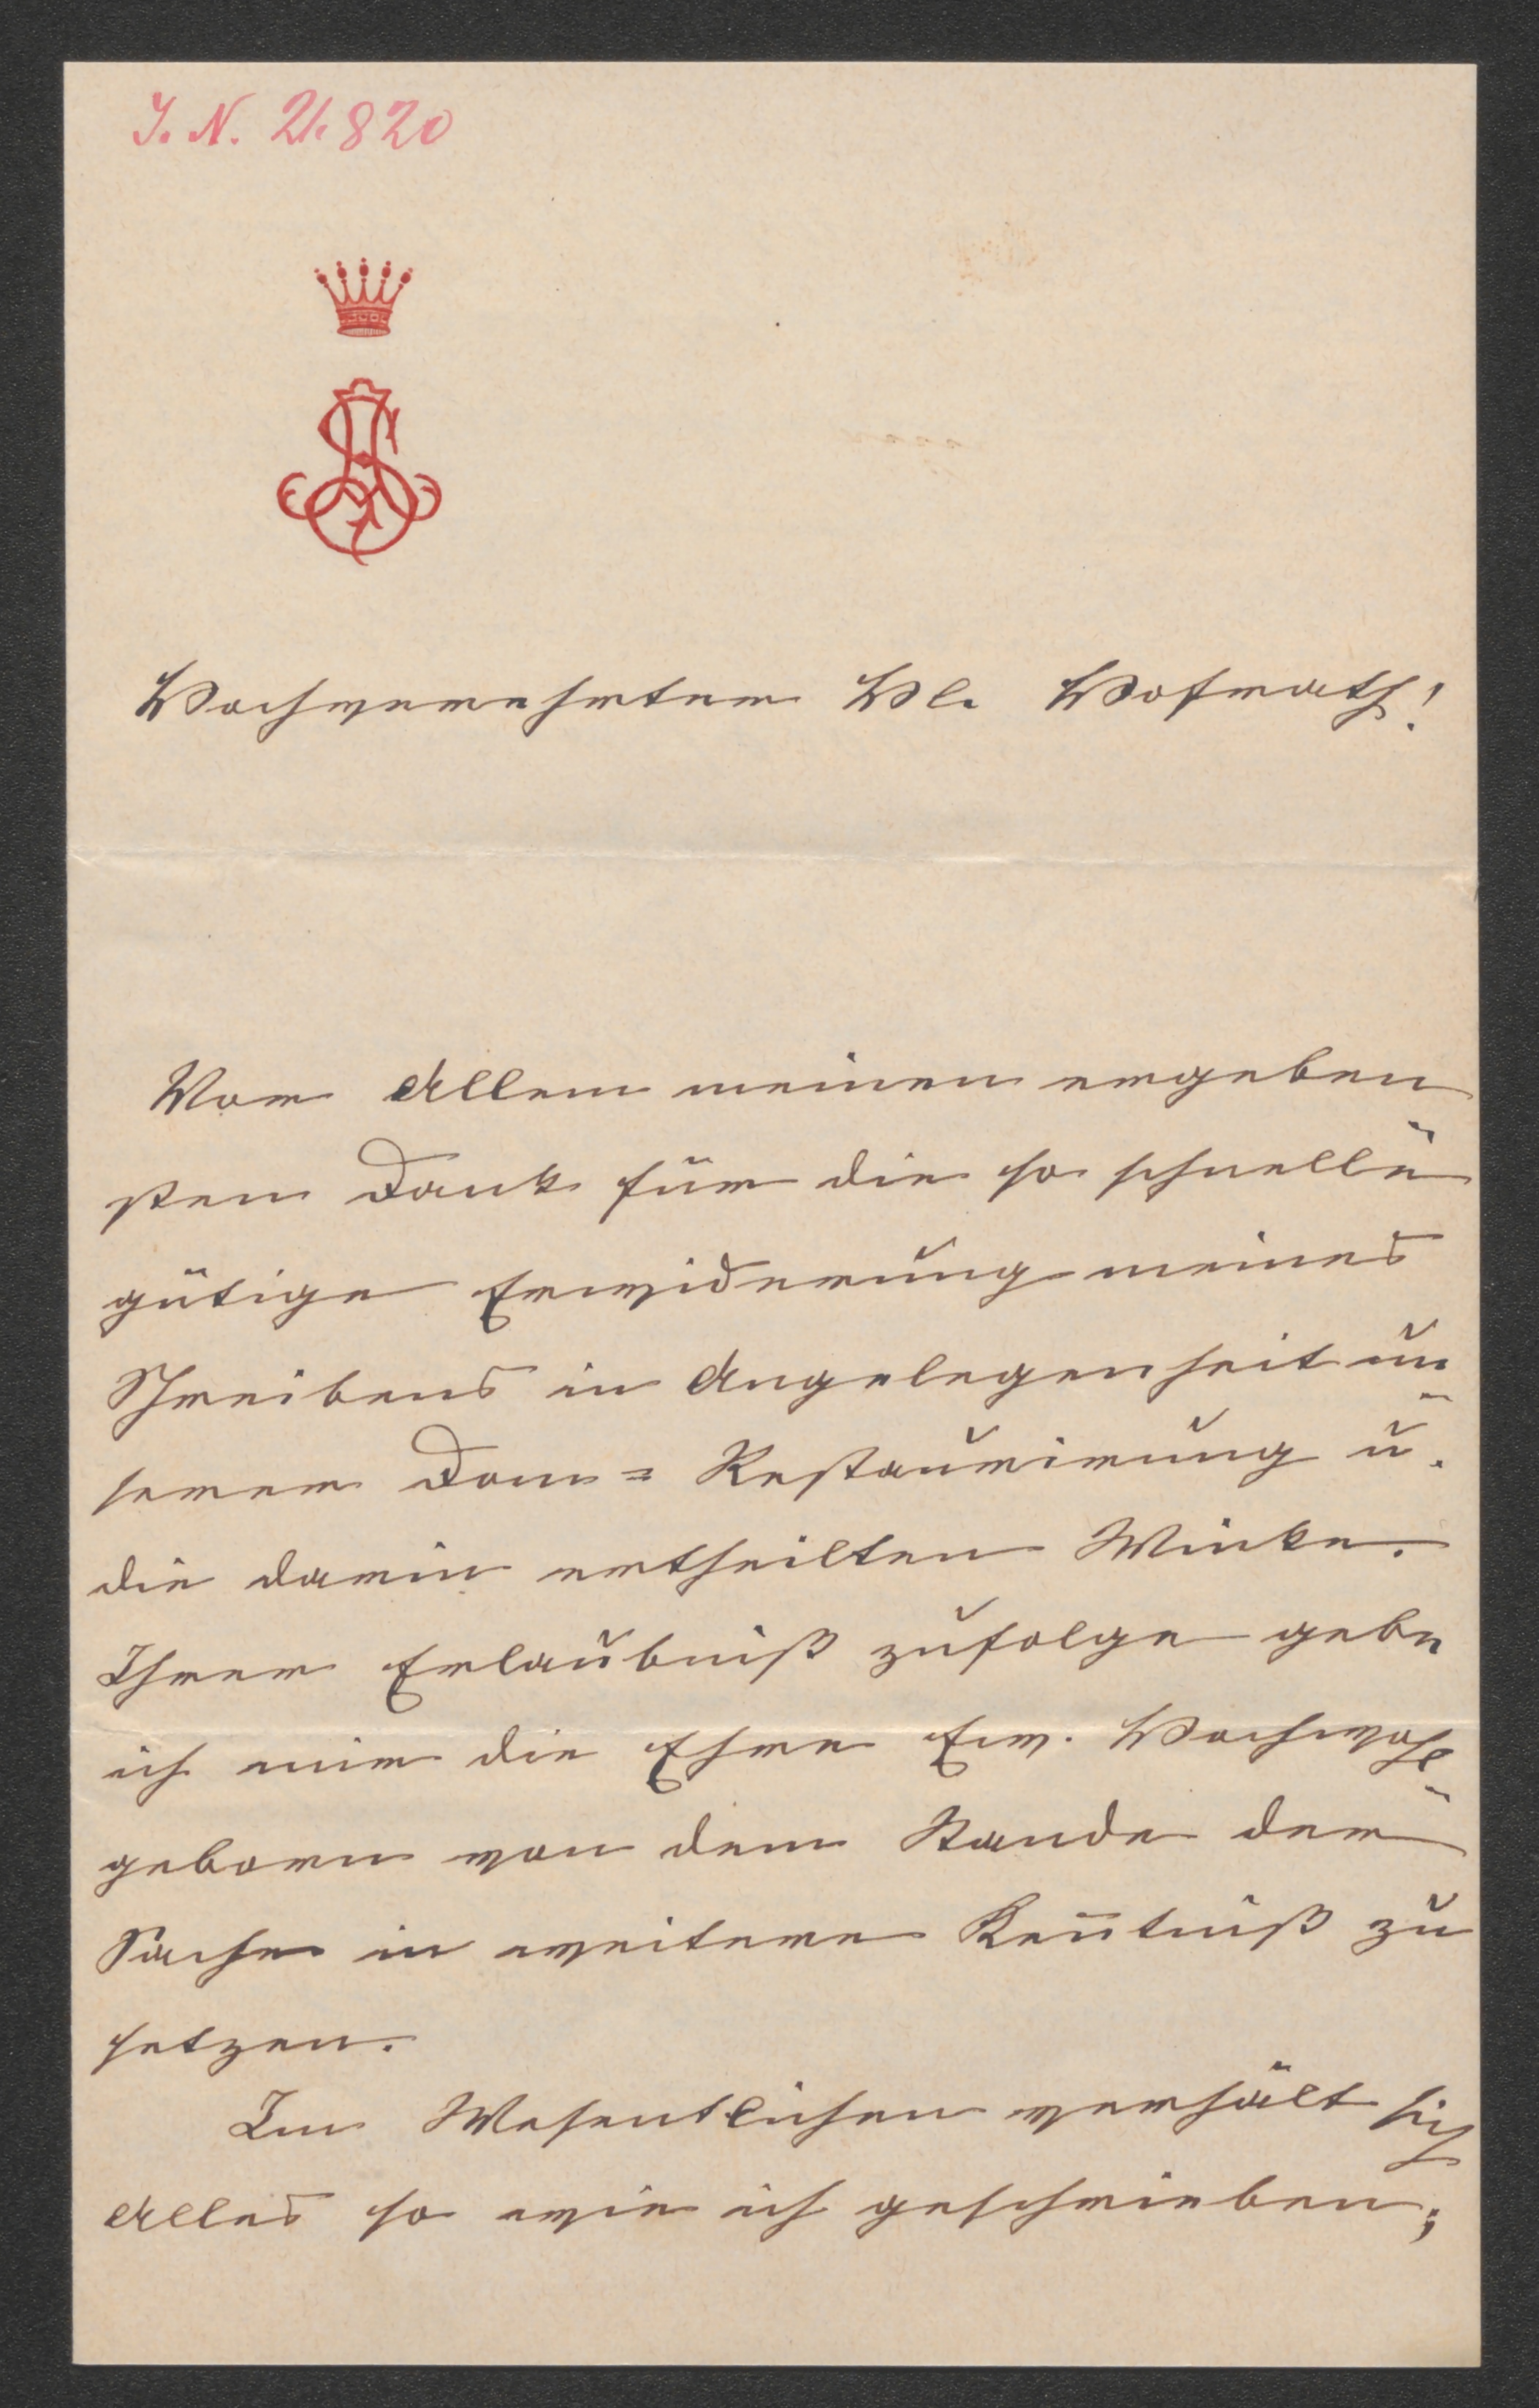 J. N. 21.820
Hochverehrter H. Hofrath!
Vor Allem meinen ergeben
sten Dank für die so schnelle
gütige Erwiderung meines
Schreibens in Angelegenheit un-
serer Dom= Restaurirung u.
die darin ertheilten Winke.
Ihrer Erlaubniß zufolge gebe
ich mir die Ehre Euw. Hochwohl-
geborn von dem Stande der
Sache in weitere Kenntniß zu
setzen.
Im Wesentlichen verhält sich
Alles so wie ich geschrieben;